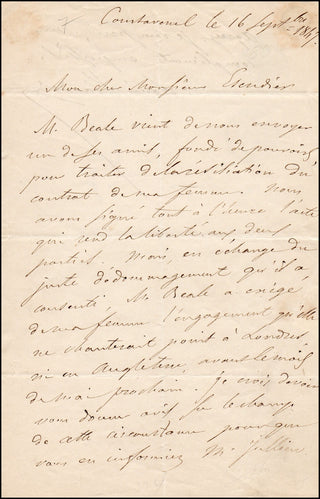 Courtavenel le 16 Septbre
Mon cher Monsieur Escudier
M. Beale vient de nous envoyer
un de ses amis, fondé de pouvoirs
pour traiter de la résiliation du
contrat de ma femme. Nous
avons signé tout à l'heure l'acte
qui rend la liberté aux deux
partis. Mais, en échange du
juste dédommagement qu'il a
consenti, M. Beale a exigé
de ma femme l'engagement qu'elle
ne chanterait point à Londres,
ni en Angleterre, avant le mois
de mai prochain. Je crois devoir
vous donner avis sur le champ
de cette circonstance pour que
vous en informiez Mr Jullien